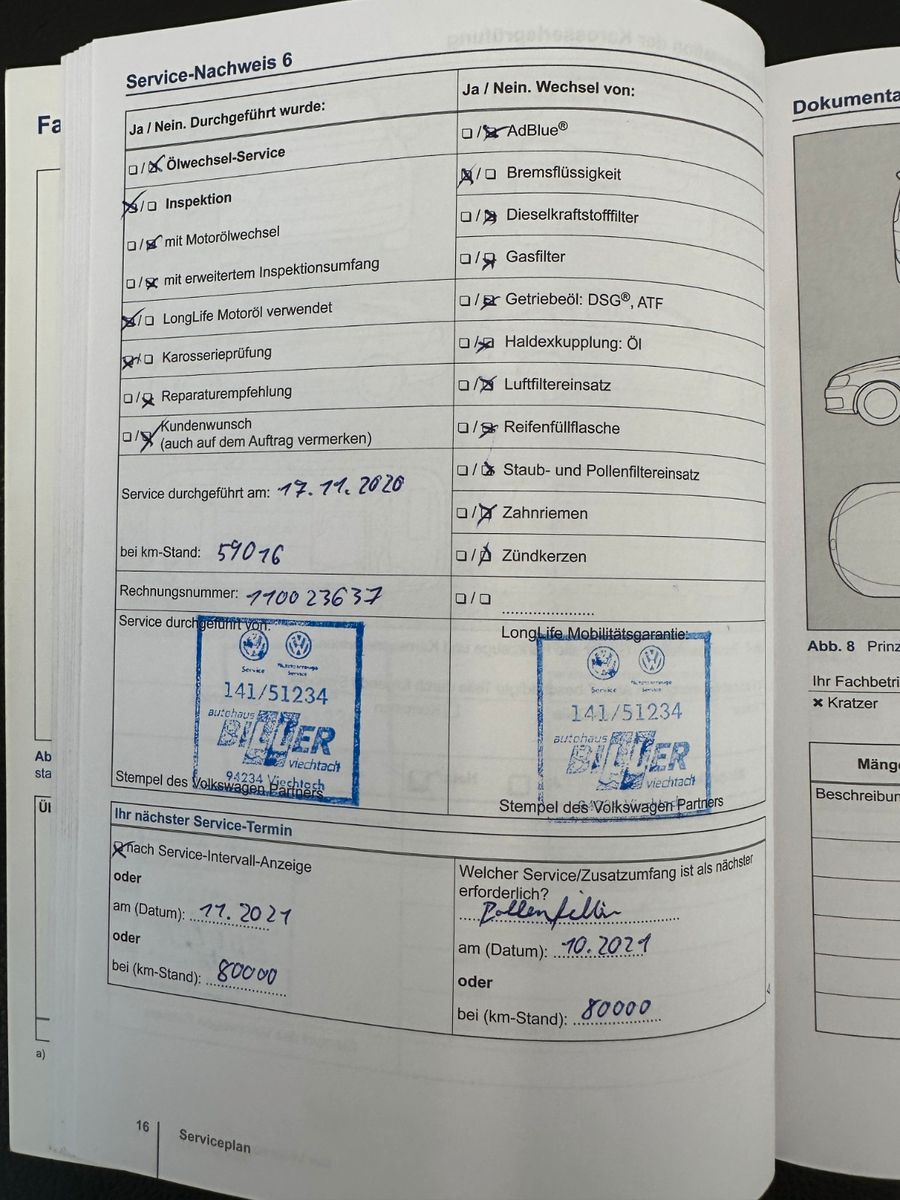 Service-Nachweis 6
Ja / Nein. Durchgeführt wurde:
☐/☒ Ölwechsel-Service
☒/☐ Inspektion
☐/☒ mit Motorölwechsel
☐/☒ mit erweitertem Inspektionsumfang
☒/☐ LongLife Motoröl verwendet
☒/☐ Karosserieprüfung
☐/☒ Reparaturempfehlung
☐/☒ Kundenwunsch
(auch auf dem Auftrag vermerken)
Service durchgeführt am: 17.11.2020
bei km-Stand: 59016
Rechnungsnummer: 110023637
Service durchgeführt von:
Service
Service
141/51234
autohaus
BINDER
viechtach
94234 Viechtach
Stempel des Volkswagen Partners
Ja / Nein. Wechsel von:
☐/☒ AdBlue®
☒/☐ Bremsflüssigkeit
☐/☒ Dieselkraftstofffilter
☐/☒ Gasfilter
☐/☒ Getriebeöl: DSG®, ATF
☐/☒ Haldexkupplung: Öl
☐/☒ Luftfiltereinsatz
☐/☒ Reifenfüllflasche
☐/☒ Staub- und Pollenfiltereinsatz
☐/☒ Zahnriemen
☐/☒ Zündkerzen
☐/☐ ....................
LongLife Mobilitätsgarantie:
Service
Service
141/51234
autohaus
BINDER
viechtach
Stempel des Volkswagen Partners
Ihr nächster Service-Termin
☒ nach Service-Intervall-Anzeige
oder
am (Datum): 11.2021
oder
bei (km-Stand): 80000
Welcher Service/Zusatzumfang ist als nächster
erforderlich?
Pollenfilter
am (Datum): 10.2021
oder
bei (km-Stand): 80000
16
Serviceplan
Fa
Ab
sta
a)
Dokumenta
Abb. 8 Prinz
Ihr Fachbetri
✖ Kratzer
Mänge
Beschreibun